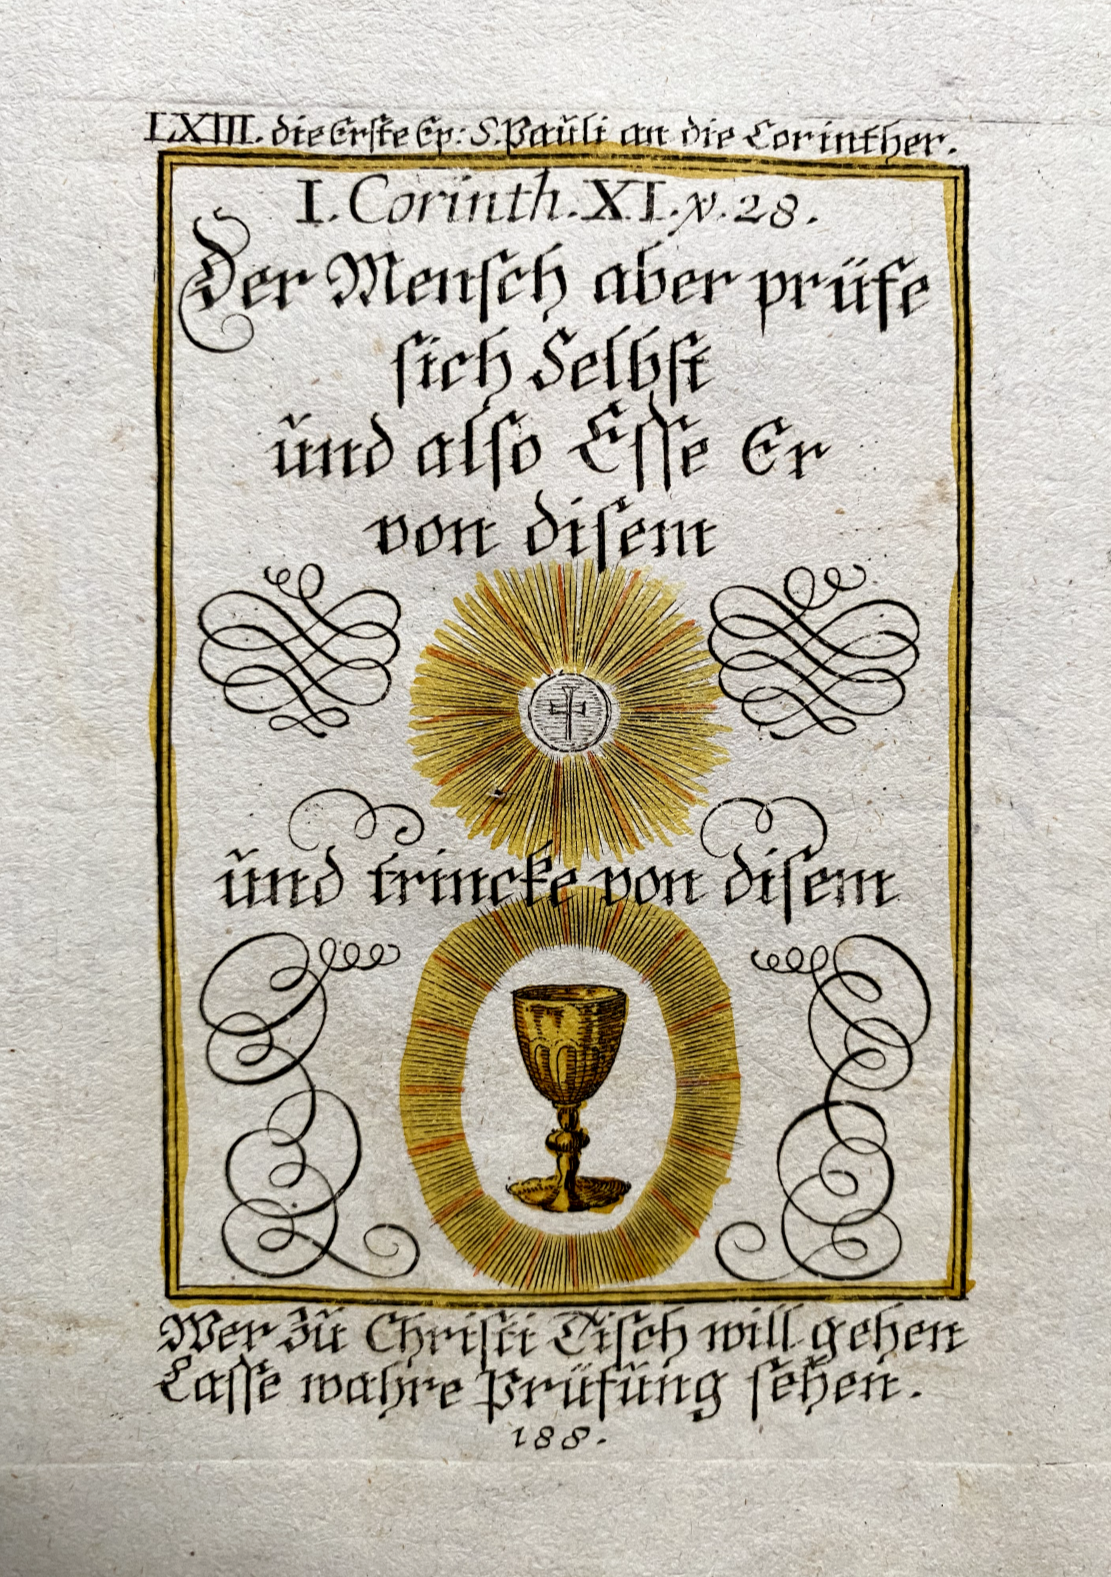 LXIII. die Erste Ep: S. Paŭli an die Corinther.
I. Corinth. XI. v. 28.
Der Mensch aber prüfe
sich Selbst
ŭnd also Esse Er
von disem
ŭnd trincke von disem
Wer zŭ Christi Tisch will gehen
Lasse wahre Prüfŭng sehen.
188.